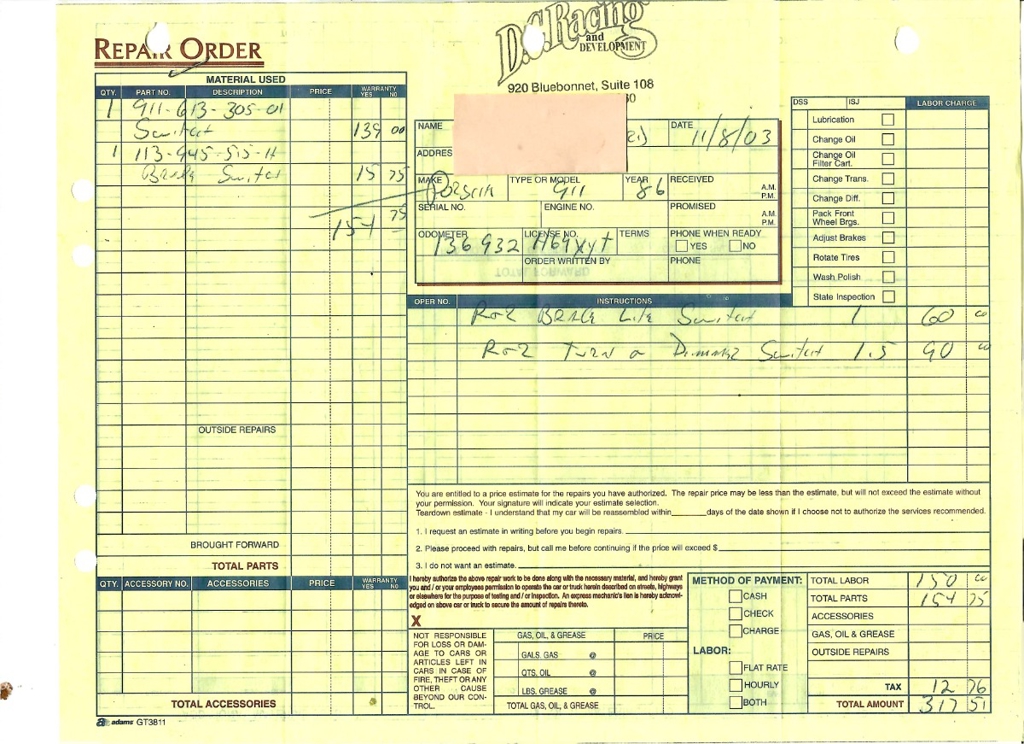 REPAIR ORDER
D.C. Racing
and
DEVELOPMENT
920 Bluebonnet, Suite 108
MATERIAL USED
QTY. PART NO. DESCRIPTION PRICE WARRANTY YES NO
1 911-613-305-01
Switch 139 00
1 113-945-515-H
Brake Switch 15 75
154 75
OUTSIDE REPAIRS
BROUGHT FORWARD
TOTAL PARTS
QTY. ACCESSORY NO. ACCESSORIES PRICE WARRANTY YES NO
TOTAL ACCESSORIES
adams GT3811
NAME DATE 11/8/03
ADDRES
MAKE Porsche TYPE OR MODEL 911 YEAR 86 RECEIVED A.M. P.M.
SERIAL NO. ENGINE NO. PROMISED A.M. P.M.
ODOMETER 136932 LICENSE NO. H69XYT TERMS PHONE WHEN READY
YES NO
ORDER WRITTEN BY PHONE
DSS ISJ LABOR CHARGE
Lubrication
Change Oil
Change Oil Filter Cart.
Change Trans.
Change Diff.
Pack Front Wheel Brgs.
Adjust Brakes
Rotate Tires
Wash Polish
State Inspection
OPER NO. INSTRUCTIONS
R&R Brake Lite Switch 1 60 00
R&R Turn Dimmer Switch 1.5 90 00
You are entitled to a price estimate for the repairs you have authorized. The repair price may be less than the estimate, but will not exceed the estimate without
your permission. Your signature will indicate your estimate selection.
Teardown estimate - I understand that my car will be reassembled within______days of the date shown if I choose not to authorize the services recommended.
1. I request an estimate in writing before you begin repairs
2. Please proceed with repairs, but call me before continuing if the price will exceed $
3. I do not want an estimate.
I hereby authorize the above repair work to be done along with the necessary material, and hereby grant
you and / or your employees permission to operate the car or truck herein described on streets, highways
or elsewhere for the purpose of testing and / or inspection. An express mechanic's lien is hereby acknowl-
edged on above car or truck to secure the amount of repairs thereto.
X
NOT RESPONSIBLE
FOR LOSS OR DAM-
AGE TO CARS OR
ARTICLES LEFT IN
CARS IN CASE OF
FIRE, THEFT OR ANY
OTHER CAUSE
BEYOND OUR CON-
TROL.
GAS, OIL, & GREASE PRICE
GALS. GAS @
QTS. OIL @
LBS. GREASE @
TOTAL GAS, OIL, & GREASE
METHOD OF PAYMENT:
CASH
CHECK
CHARGE
LABOR:
FLAT RATE
HOURLY
BOTH
TOTAL LABOR 150 00
TOTAL PARTS 154 75
ACCESSORIES
GAS, OIL & GREASE
OUTSIDE REPAIRS
TAX 12 76
TOTAL AMOUNT 317 51